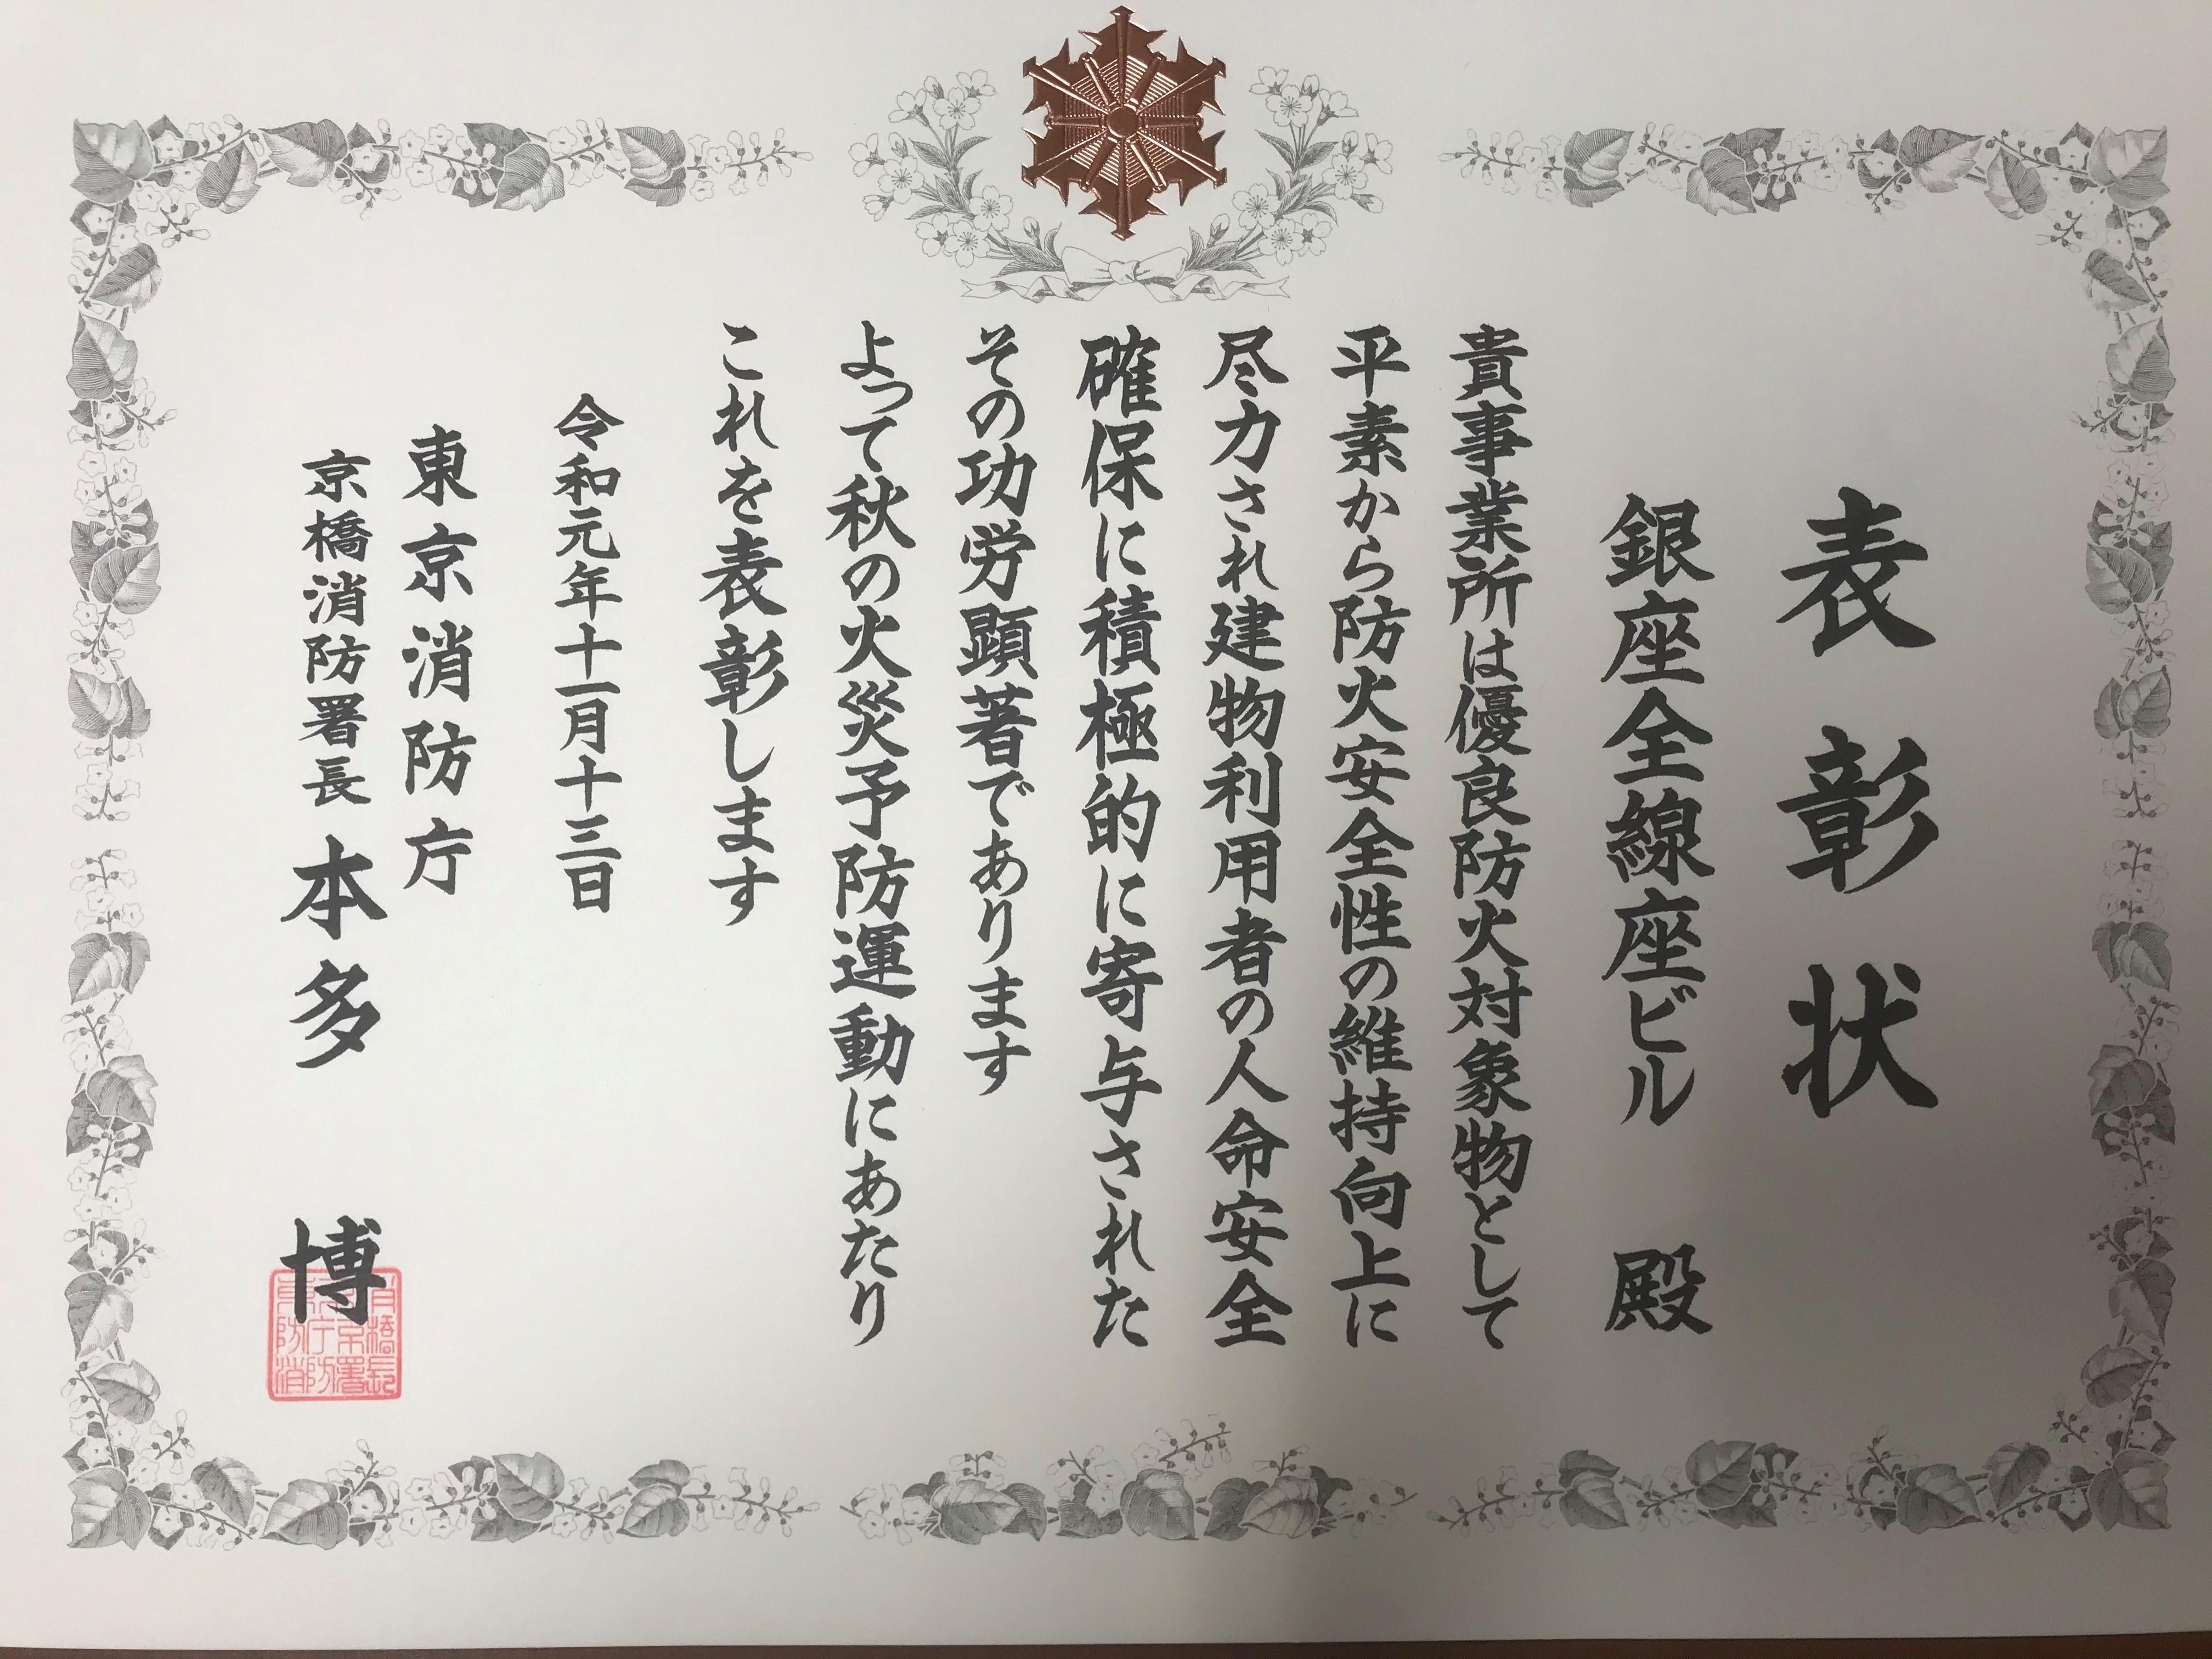 表彰状
銀座全線座ビル 殿
貴事業所は優良防火対象物として
平素から防火安全性の維持向上に
尽力され建物利用者の人命安全
確保に積極的に寄与された
その功労顕著であります
よって秋の火災予防運動にあたり
これを表彰します
令和元年十一月十三日
東京消防庁
京橋消防署長 本多 博